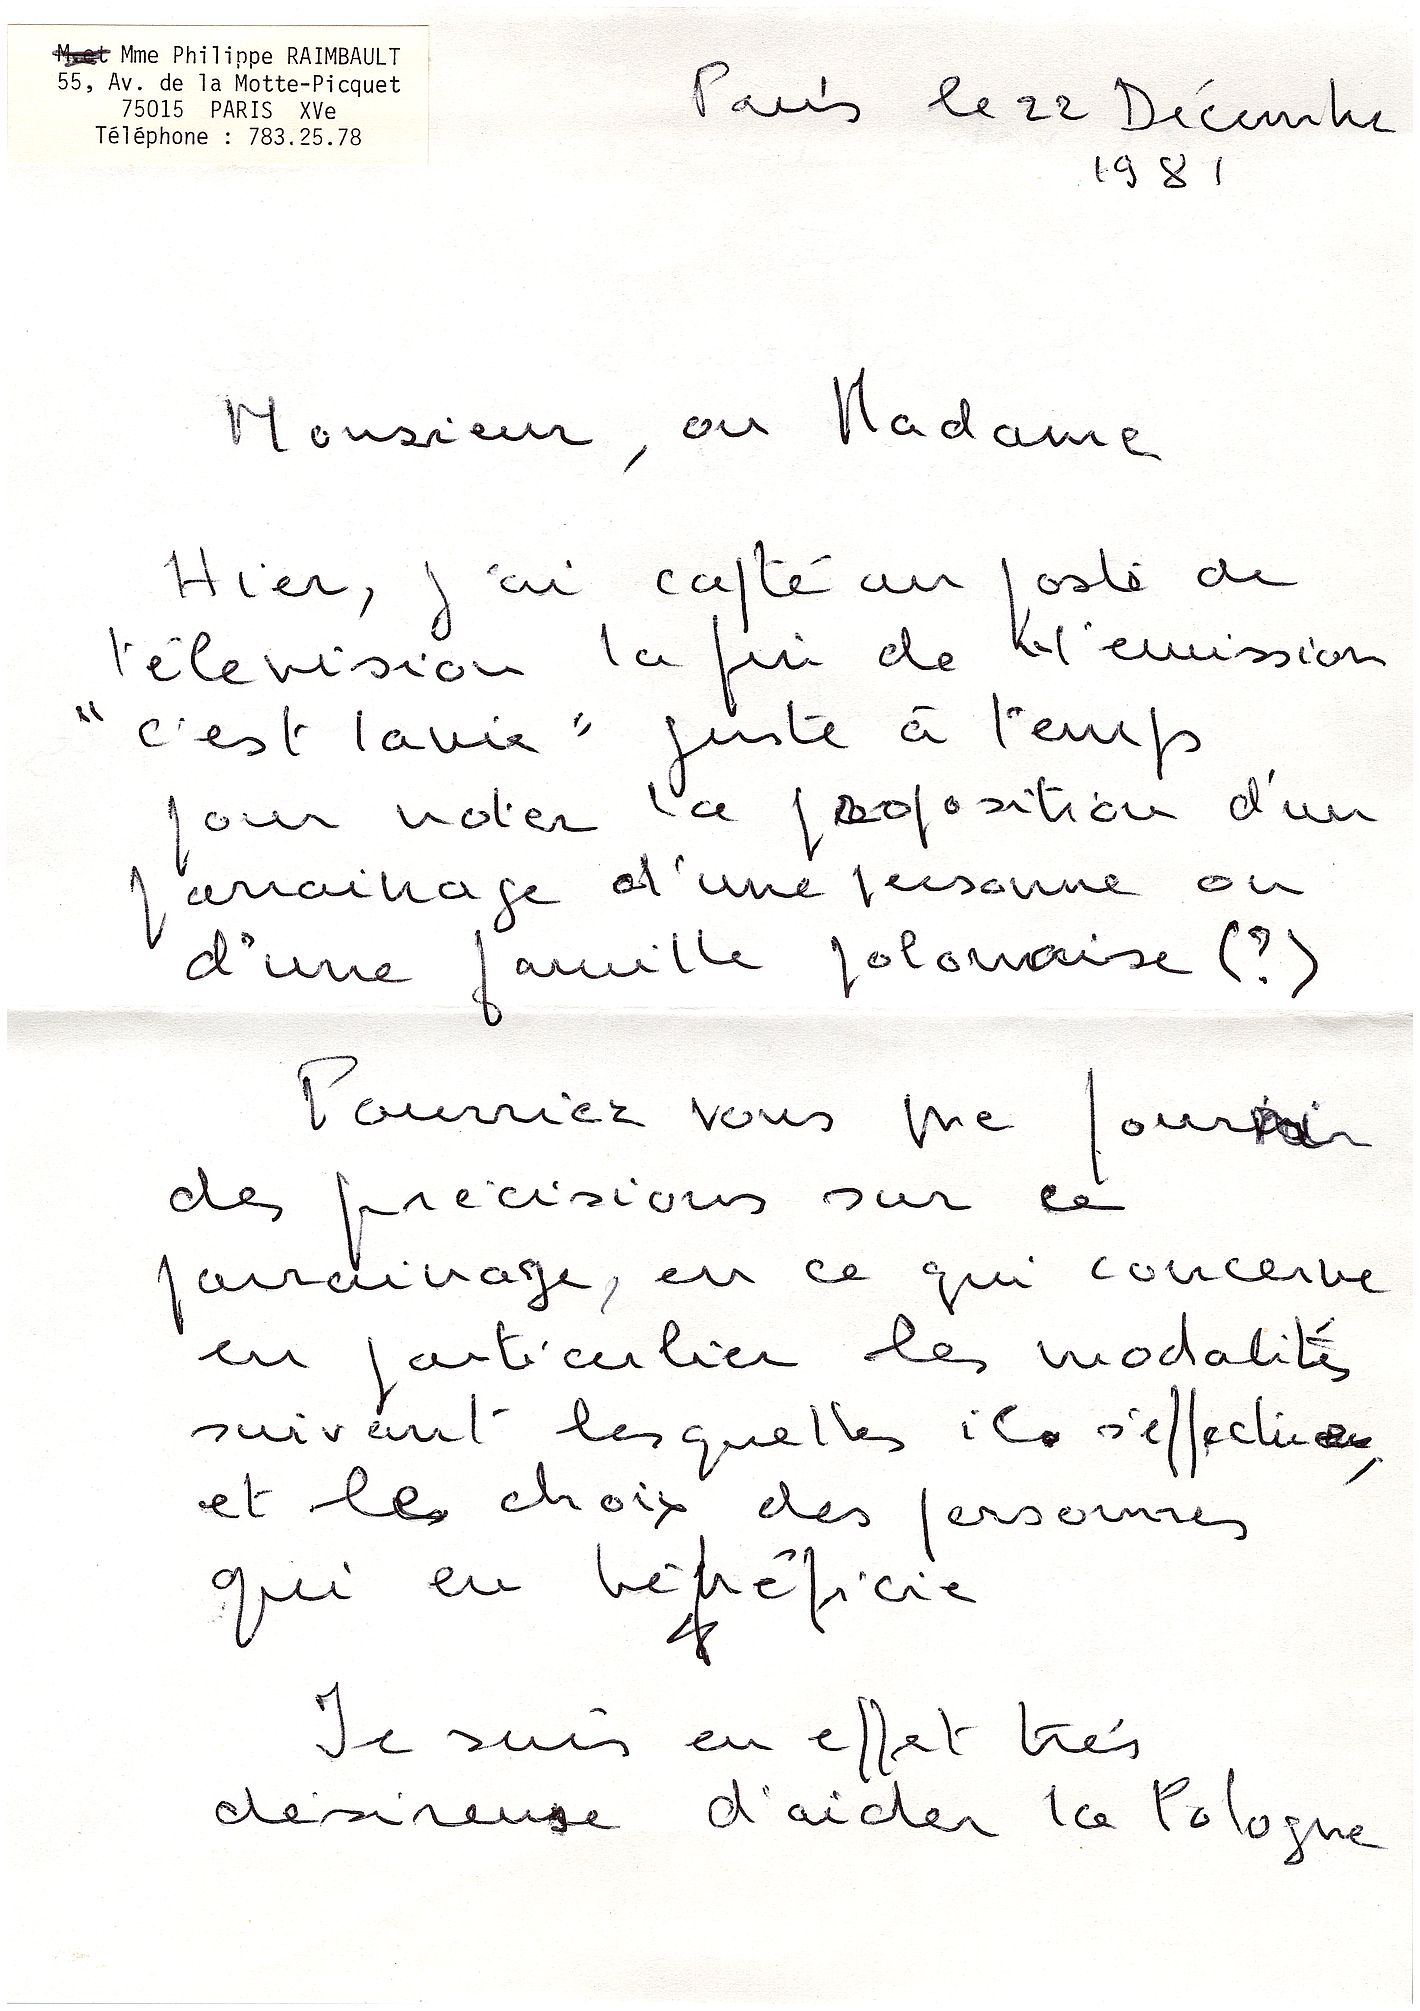 M. et Mme Philippe RAIMBAULT
55, Av. de la Motte-Picquet
75015 PARIS XVe
Téléphone : 783.25.78
Paris le 22 Décembre
1981
Monsieur, ou Madame
Hier, j'ai capté au poste de
télévision la fin de l'emission
"c'est la vie" juste à temps
pour noter la proposition d'un
parrainage d'une personne ou
d'une famille polonaise (?)
Pourriez vous me fournir
des précisions sur ce
parrainage, en ce qui concerne
en particulier les modalités
suivant lesquelles il s'effectue,
et le choix des personnes
qui en bénéficie
Je suis en effet très
désireuse d'aider la Pologne